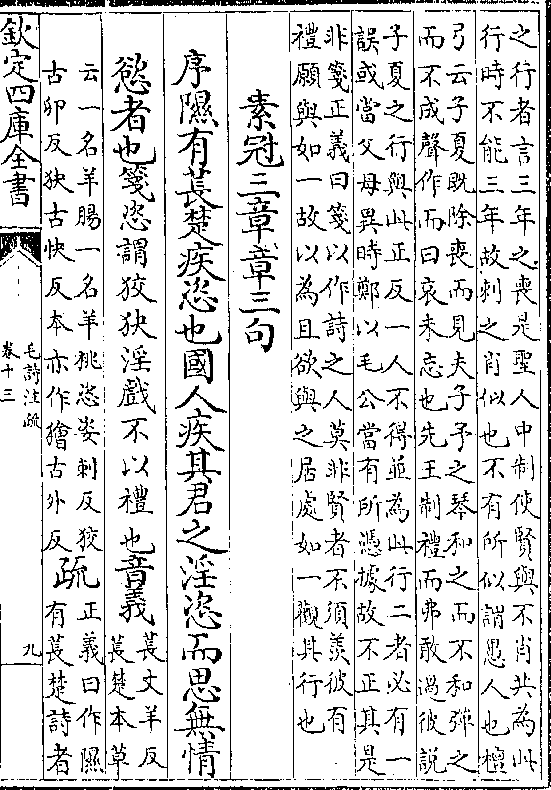 之行者言三年之喪是聖人中制使賢與不肖共為此
行時不能三年故刺之肖似也不有所似謂愚人也檀
弓云子夏既除喪而見夫子予之琴和之而不和彈之
而不成聲作而曰哀未忘也先王制禮而弗敢過彼說
子夏之行與此正反一人不得並為此行二者必有一
誤或當父母異時鄭以毛公當有所憑據故不正其是
非箋正義曰箋以作詩之人莫非賢者不須羨彼有
禮願與如一故以為且欲與之居處如一觀其行也
素冠三章章三句
序隰有萇楚疾恣也國人疾其君之淫恣而思無情
慾者也箋恣謂狡狹淫戲不以禮也音義
萇文羊反
萇楚本草
云一名羊腸一名羊桃恣姿刺反狡
古卯反狹古快反本亦作獪古外反
疏
正義曰作隰
有萇楚詩者
欽定四庫全書
毛詩注疏
卷十三
九